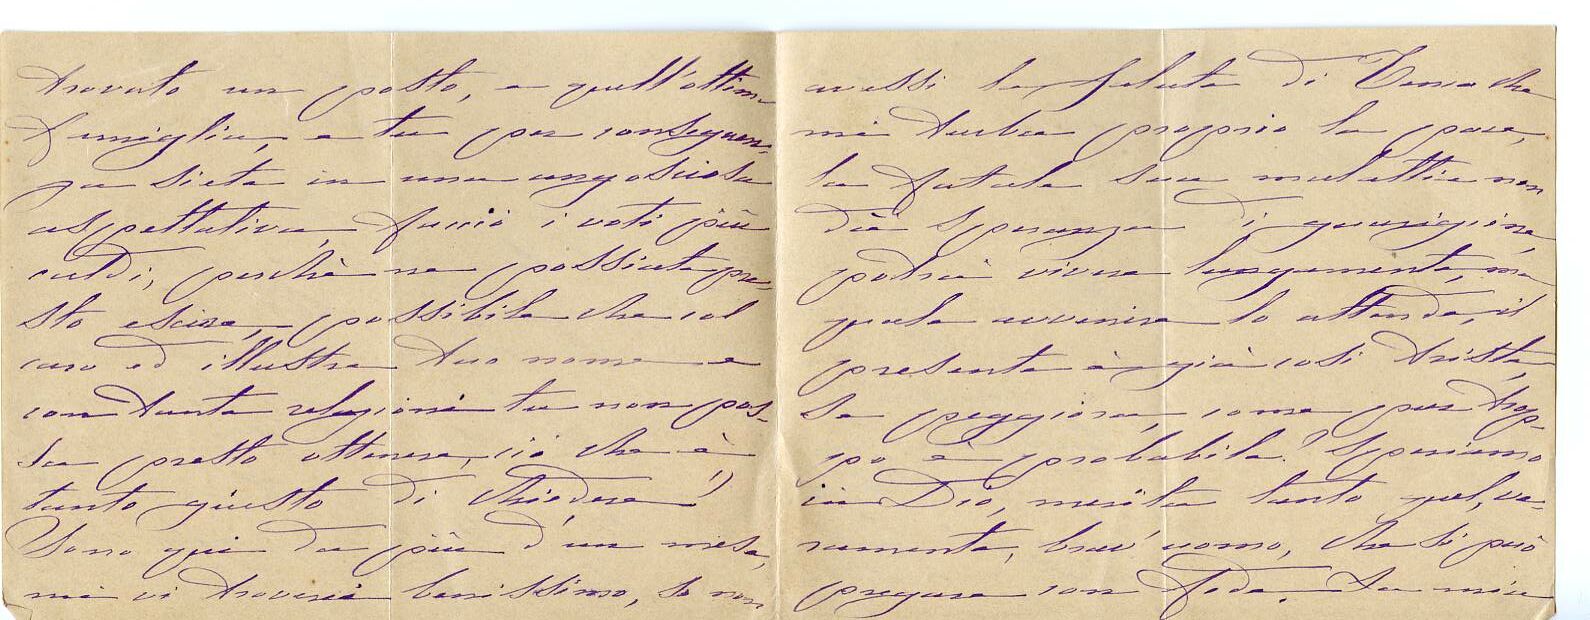 trovato un posto, e quell'ottima
famiglia, e tu per conseguen-
za siete in una angosciosa
aspettativa, faccio i voti più
caldi, perchè ne possiate pre-
sto escire, possibile che col
caro ed illustre tuo nome e
con tante relazioni tu non pos-
sa presto ottenere, ciò che è
tanto giusto di chiedere!
Sono qui da più d'un mese,
mi vi troverei benissimo, se non
avessi la salute di che
mi turba proprio la pace,
la fatale sua malattia non
dà speranza di guarigione,
potrà vivere lungamente, ma
quale avvenire lo attende, il
presente è già così triste,
se peggiora, come pur trop-
po è probabile? Speriamo
in Dio, merita tanto quel, ve-
ramente, brav'uomo, che si può
pregare con fede. La mia